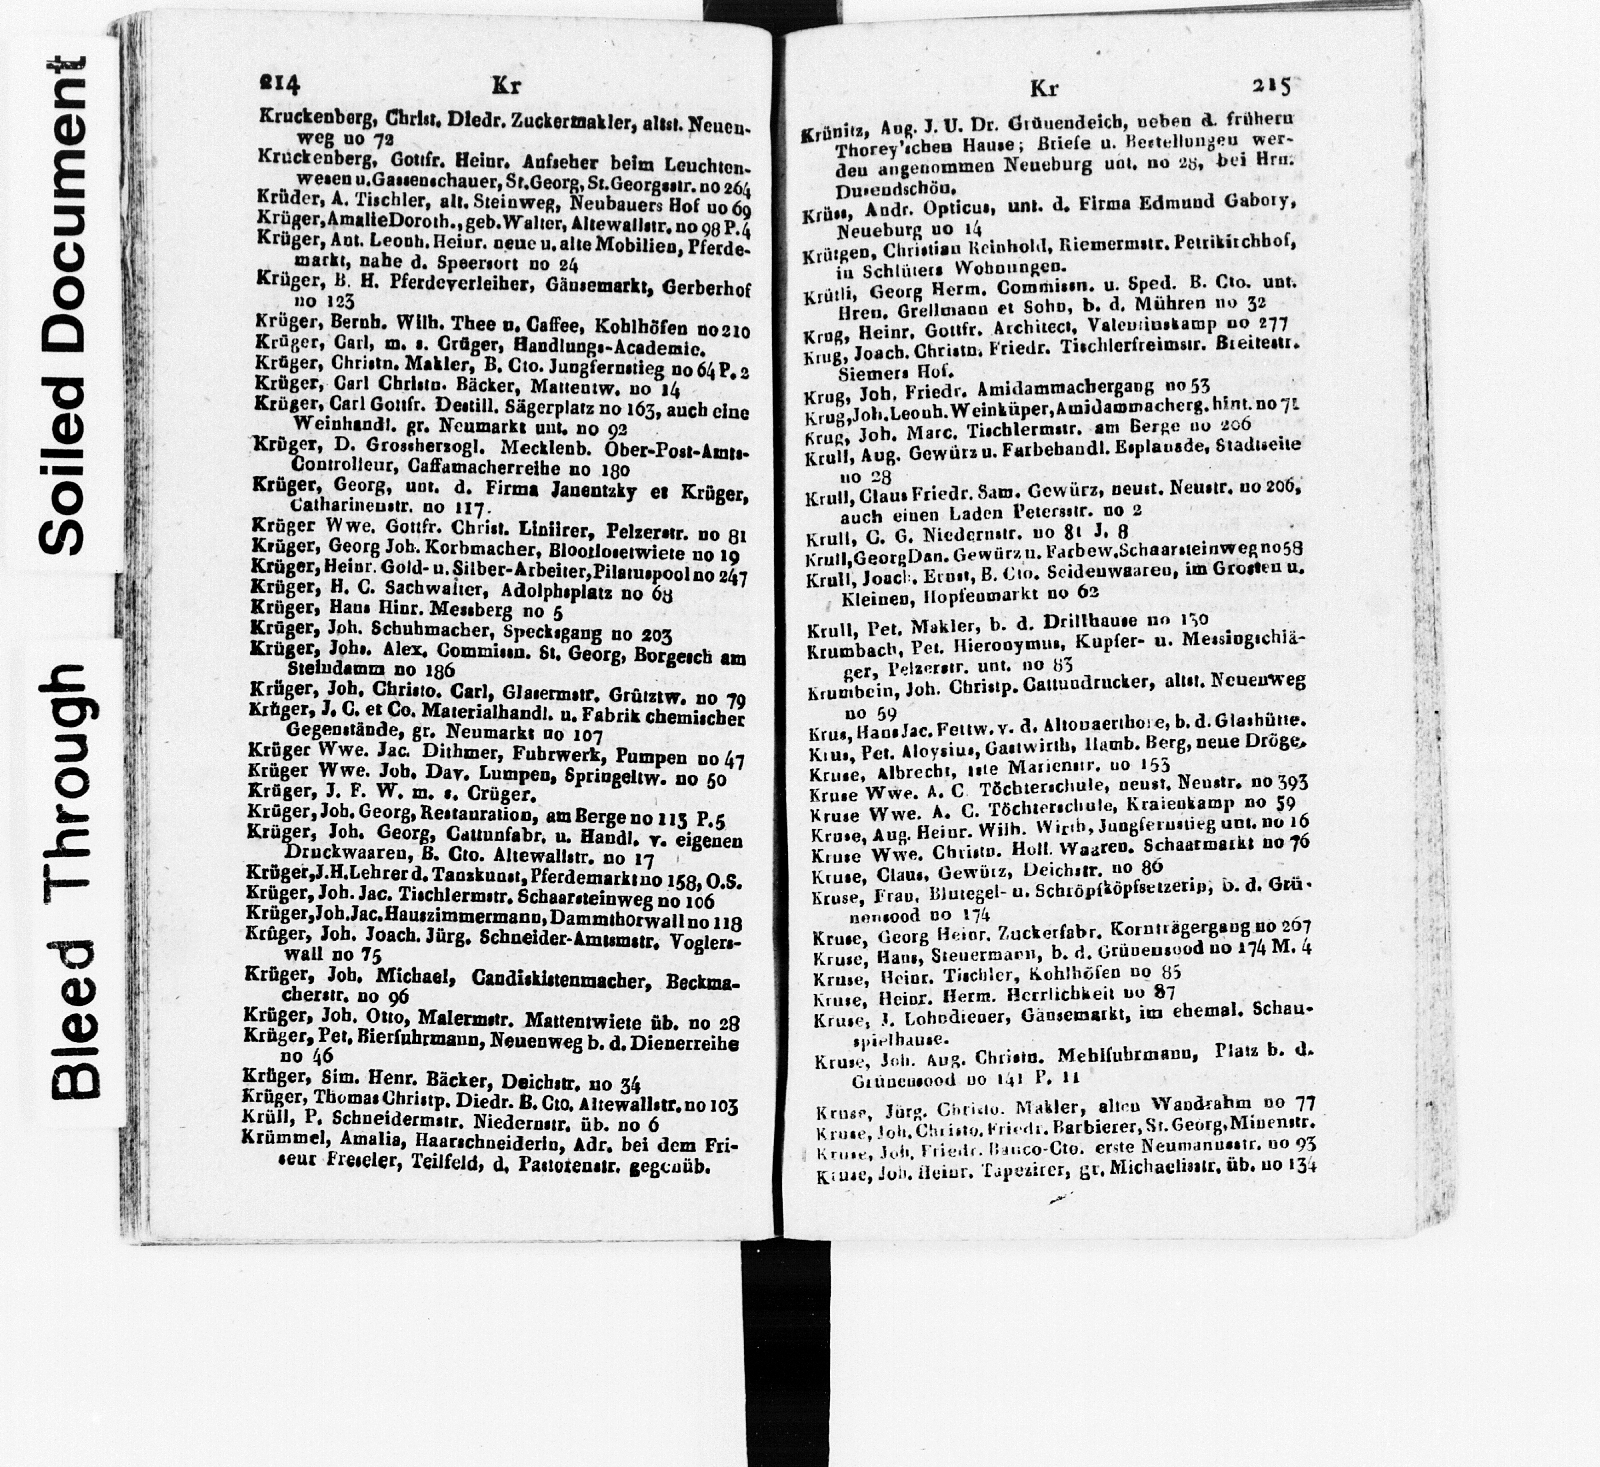 Soiled Document
Bleed Through
214 Kr
Kruckenberg, Christ. Diedr. Zuckermakler, altst. Neuen-
weg no 72
Kruckenberg, Gottfr. Heinr. Aufseher beim Leuchten-
wesen u. Gassenschauer, St. Georg, St. Georgsstr. no 264
Krüder, A. Tischler, alt. Steinweg, Neubauers Hof no 69
Krüger, Amalie Doroth., geb. Walter, Altewallstr. no 98 P. 4
Krüger, Ant. Leonh. Heinr. neue u. alte Mobilien, Pferde-
markt, nahe d. Speersort no 24
Krüger, B. H. Pferdeverleiher, Gänsemarkt, Gerberhof
no 123
Krüger, Bernh. Wilh. Thee u. Caffee, Kohlhöfen no 210
Krüger, Carl, m. s. Crüger, Handlungs-Academie.
Krüger, Christn. Makler, B. Cto. Jungfernstieg no 64 P. 2
Krüger, Carl Christn. Bäcker, Mattentw. no 14
Krüger, Carl Gottfr. Destill. Sägerplatz no 163, auch eine
Weinhandl. gr. Neumarkt unt. no 92
Krüger, D. Grossherzogl. Mecklenb. Ober-Post-Amts-
Controlleur, Caffamacherreihe no 180
Krüger, Georg, unt. d. Firma Janentzky et Krüger,
Catharinenstr. no 117.
Krüger Wwe. Gottfr. Christ. Liniirer, Pelzerstr. no 81
Krüger, Georg Joh. Korbmacher, Bloorlosetwiete no 19
Krüger, Heinr. Gold- u. Silber-Arbeiter, Pilatuspool no 247
Krüger, H. C. Sachwalter, Adolphsplatz no 68
Krüger, Hans Hinr. Messberg no 5
Krüger, Joh. Schuhmacher, Specksgang no 203
Krüger, Johs. Alex. Commissn. St. Georg, Borgesch am
Steindamm no 186
Krüger, Joh. Christo. Carl, Glasermstr. Grütztw. no 79
Krüger, J. C. et Co. Materialhandl. u. Fabrik chemischer
Gegenstände, gr. Neumarkt no 107
Krüger Wwe. Jac. Dithmer, Fuhrwerk, Pumpen no 47
Krüger Wwe. Joh. Dav. Lumpen, Springeltw. no 50
Krüger, J. F. W. m. s. Crüger.
Krüger, Joh. Georg, Restauration, am Berge no 113 P. 5
Krüger, Joh. Georg, Cattunfabr. u. Handl. v. eigenen
Druckwaaren, B. Cto. Altewallstr. no 17
Krüger, J. H. Lehrer d. Tanzkunst, Pferdemarkt no 158, O.S.
Krüger, Joh. Jac. Tischlermstr. Schaarsteinweg no 106
Krüger, Joh. Jac. Hauszimmermann, Dammthorwall no 118
Krüger, Joh. Joach. Jürg. Schneider-Amtsmstr. Voglers-
wall no 75
Krüger, Joh. Michael, Candiskistenmacher, Beckma-
cherstr. no 96
Krüger, Joh. Otto, Malermstr. Mattentwiete üb. no 28
Krüger, Pet. Bierfuhrmann, Neuenweg b. d. Dienerreihe
no 46
Krüger, Sim. Henr. Bäcker, Deichstr. no 34
Krüger, Thomas Christp. Diedr. B. Cto. Altewallstr. no 103
Krüll, P. Schneidermstr. Niedernstr. üb. no 6
Krümmel, Amalia, Haarschneiderin, Adr. bei dem Fri-
seur Freseler, Teilfeld, d. Pastorenstr. gegenüb.
Kr 215
Krünitz, Aug. J. U. Dr. Grünendeich, neben d. frühern
Thorey'schen Hause; Briefe u. Bestellungen wer-
den angenommen Neueburg unt. no 28, bei Hrn.
Dusendschön.
Krüss, Andr. Opticus, unt. d. Firma Edmund Gabory,
Neueburg no 14
Krütgen, Christian Reinhold, Riemermstr. Petrikirchhof,
in Schlüters Wohnungen.
Krütli, Georg Herm. Commissn. u. Sped. B. Cto. unt.
Hren. Grellmann et Sohn, b. d. Mühren no 32
Krug, Heinr. Gottfr. Architect, Valentinskamp no 277
Krug, Joach. Christn. Friedr. Tischlerfreimstr. Breitestr.
Siemers Hof.
Krug, Joh. Friedr. Amidammachergang no 53
Krug, Joh. Leonh. Weinküper, Amidammacherg. hint. no 71
Krug, Joh. Marc. Tischlermstr. am Berge no 206
Krull, Aug. Gewürz u. Farbehandl. Esplanade, Stadtseite
no 28
Krull, Claus Friedr. Sam. Gewürz, neust. Neustr. no 206,
auch einen Laden Petersstr. no 2
Krull, C. G. Niedernstr. no 81 J. 8
Krull, Georg Dan. Gewürz u. Farbew. Schaarsteinweg no 58
Krull, Joach. Ernst, B. Cto. Seidenwaaren, im Grossen u.
Kleinen, Hopfenmarkt no 62
Krull, Pet. Makler, b. d. Drillhause no 130
Krumbach, Pet. Hieronymus, Kupfer- u. Messingschlä-
ger, Pelzerstr. unt. no 83
Krumbein, Joh. Christp. Cattundrucker, altst. Neuenweg
no 59
Krus, Hans Jac. Fettw. v. d. Altonaerthore, b. d. Glashütte.
Krus, Pet. Aloysius, Gastwirth, Hamb. Berg, neue Dröge.
Kruse, Albrecht, 1ste Marienstr. no 153
Kruse Wwe. A. C. Töchterschule, neust. Neustr. no 393
Kruse Wwe. A. C. Töchterschule, Kraienkamp no 59
Kruse, Aug. Heinr. Wilh. Wirth, Jungfernstieg unt. no 16
Kruse Wwe. Christn. Holl. Waaren. Schaarmarkt no 76
Kruse, Claus, Gewürz, Deichstr. no 86
Kruse, Frau, Blutegel- u. Schröpfköpfsetzerin, b. d. Grü-
nensood no 174
Kruse, Georg Heinr. Zuckerfabr. Kornträgergang no 267
Kruse, Hans, Steuermann, b. d. Grünensood no 174 M. 4
Kruse, Heinr. Tischler, Kohlhöfen no 85
Kruse, Heinr. Herm. Herrlichkeit no 87
Kruse, J. Lohndiener, Gänsemarkt, im ehemal. Schau-
spielhause.
Kruse, Joh. Aug. Christn. Mehlfuhrmann, Platz b. d.
Grünensood no 141 P. 11
Kruse, Jürg. Christo. Makler, alten Wandrahm no 77
Kruse, Joh. Christo. Friedr. Barbierer, St. Georg, Minenstr.
Kruse, Joh. Friedr. Banco-Cto. erste Neumannsstr. no 93
Kruse, Joh. Heinr. Tapezirer, gr. Michaelisstr. üb. no 134